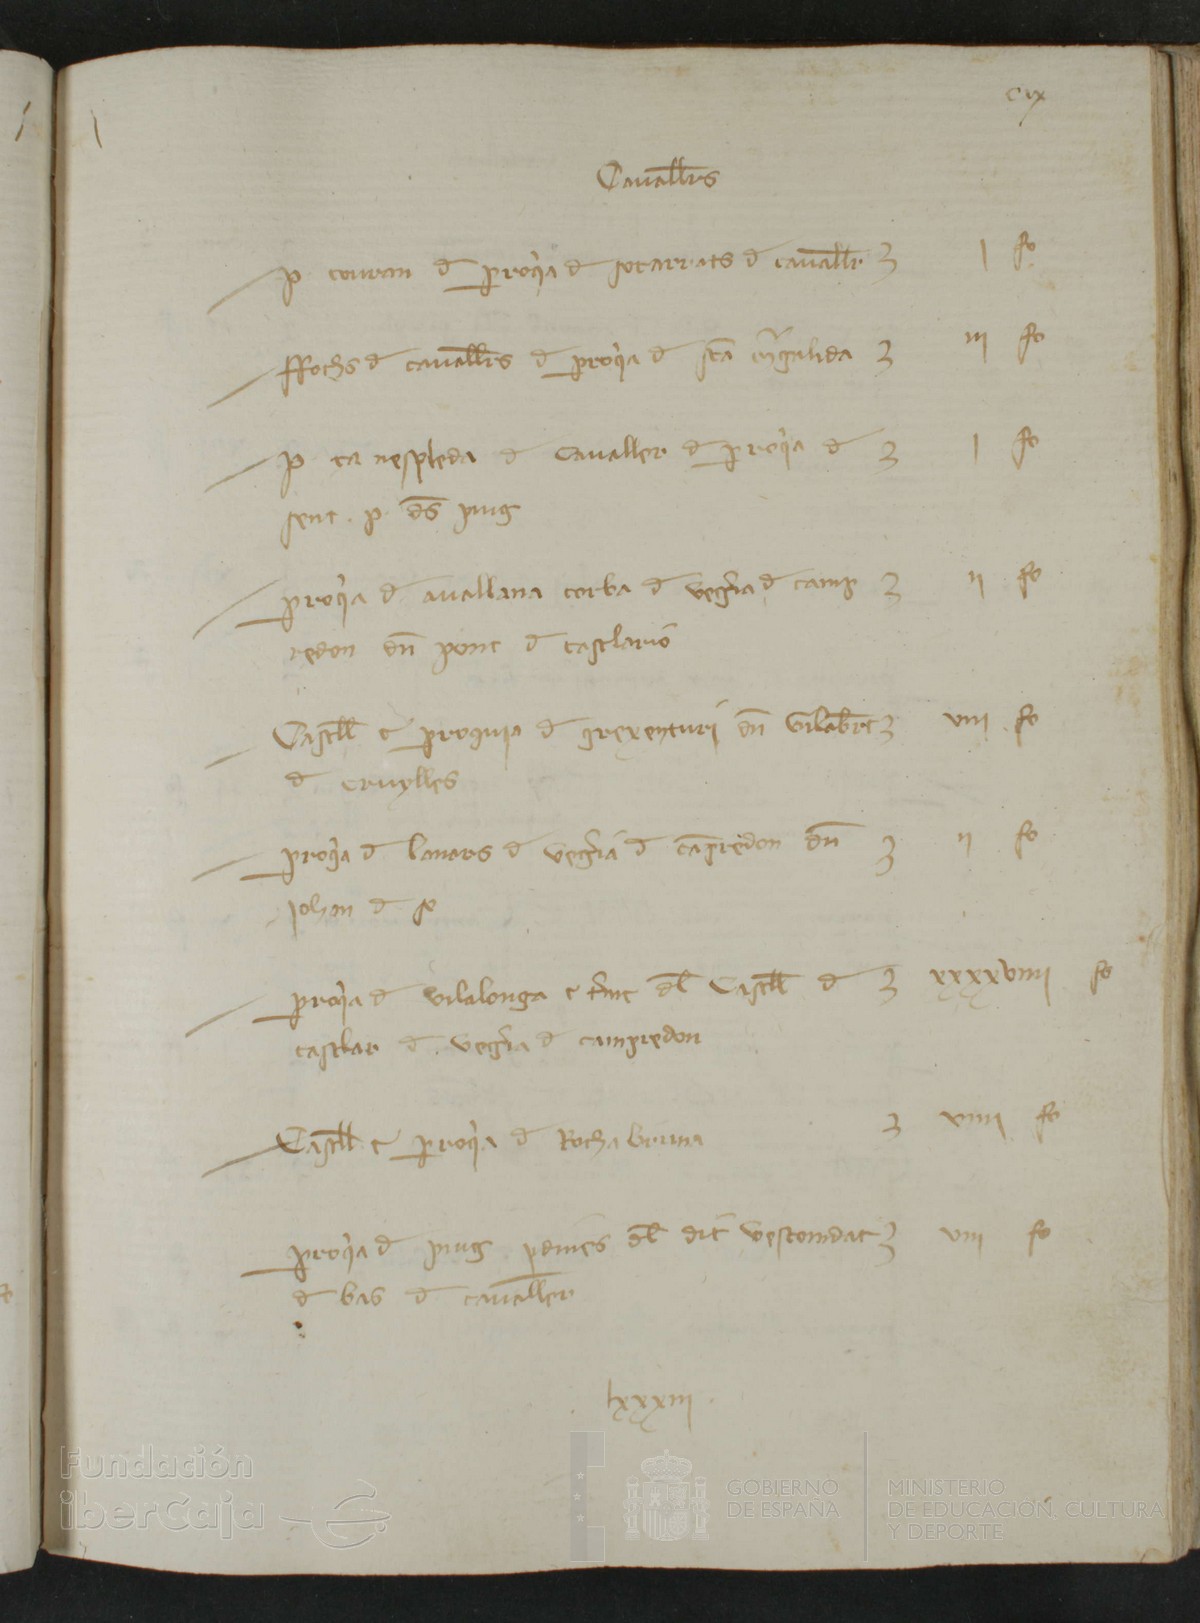 cix
Cauallers
p couran d proqia d socarrats d cauallr I fo
ffochs d cauallers d proqia d sca mgalida III fo
p ça nespleda d Caualler d proqia d I fo
sent . p . ds puig
proqia d auallana corba d vegria d camp II fo
redon dn ponc d casclario
Castll e proquia d grexenturi dn Gilabrt VIIII fo
d Cruylles
proqia d lanars d vegria d capredon dn II fo
Johan d so
proqia d vilalonga e tme dl Castll d XXXXVIIII fo
castlar d vegria d campredon
Castll e proqia d Rocha bruna VIIII fo
proqia d puig pdines dl dit vescomdat VIII fo
d bas d cauallers
lxxxiii
Fundación
iberCaja
GOBIERNO
DE ESPAÑA
MINISTERIO
DE EDUCACIÓN, CULTURA
Y DEPORTE